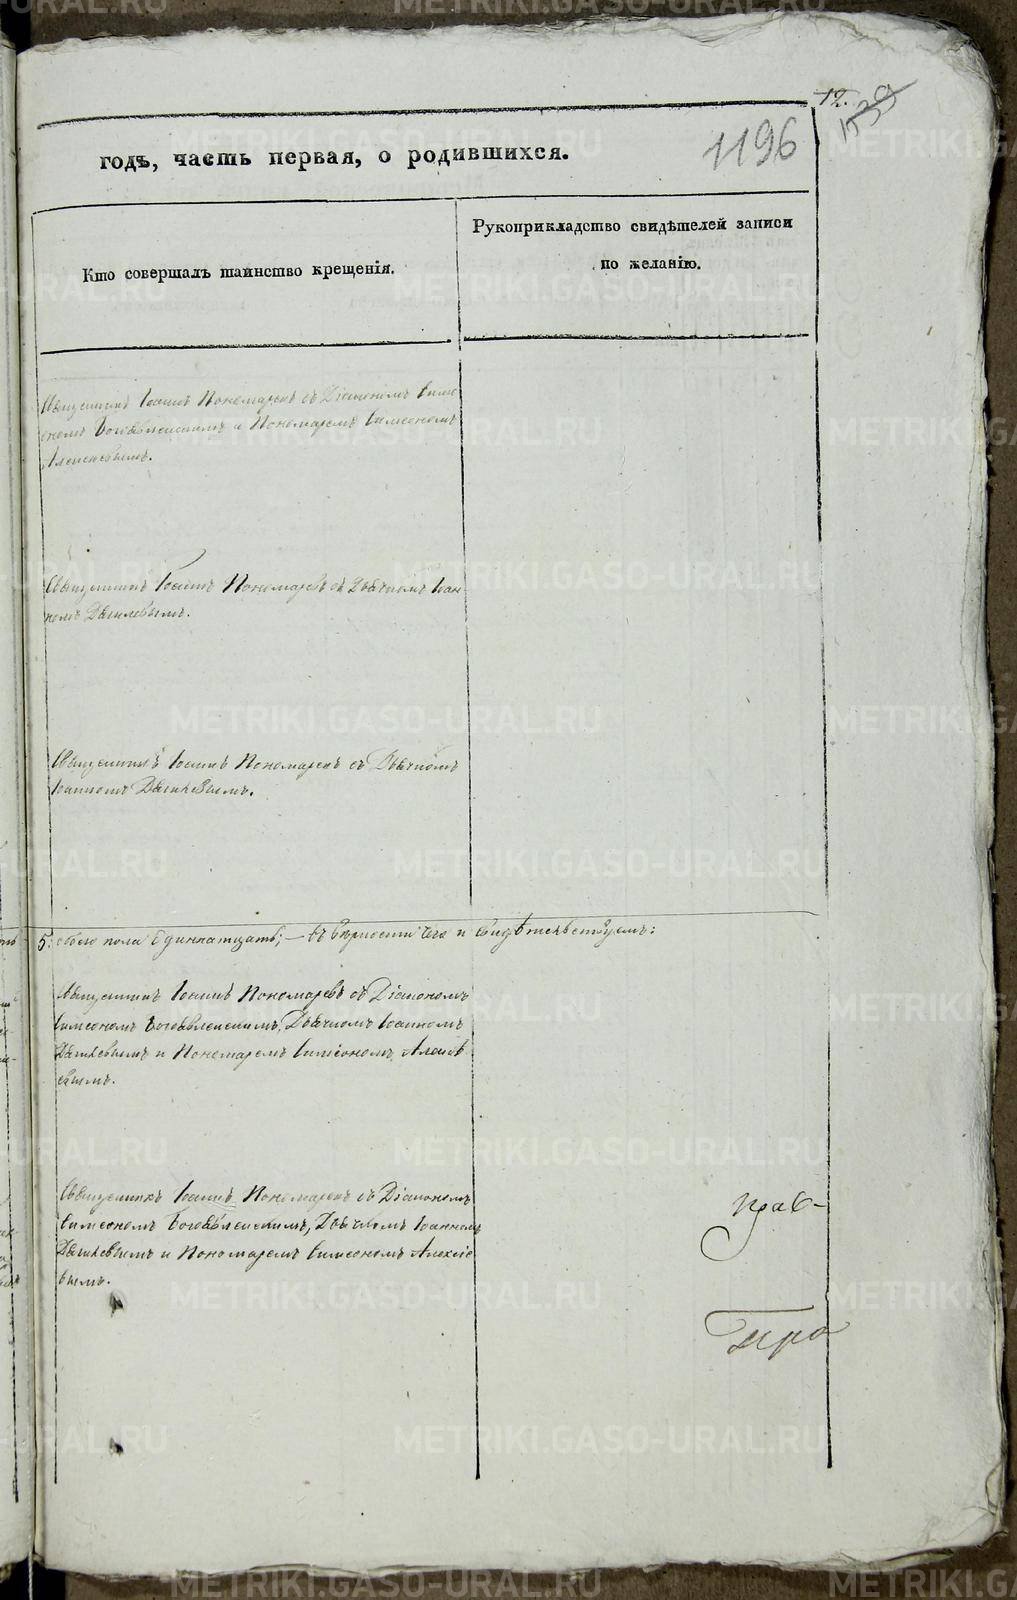 12.
1196
годъ, часть первая, о родившихся.
Кто совершалъ таинство крещенія.
Рукоприкладство свидѣтелей записи
по желанію.
Священникъ Іоаннъ Пономаревъ съ Діакономъ Симе
ономъ Богоявленскимъ и Пономаремъ Симеономъ
Алексѣевымъ.
Священникъ Іоаннъ Пономаревъ съ Дьячкомъ Іоан
номъ
Священникъ Іоаннъ Пономаревъ съ Дьячкомъ
Іоанномъ
5: обоего пола Единнатцать; — въ вѣрности чего и свидѣтельствуемъ:
Священникъ Іоаннъ Пономаревъ съ Діакономъ
Симеономъ Богоявленскимъ, Дьячкомъ Іоанномъ
и Пономаремъ Симеономъ Алексѣ
евымъ.
Священникъ Іоаннъ Пономаревъ съ Діакономъ
Симеономъ Богоявленскимъ, Дьячкомъ Іоанномъ
и Пономаремъ Симеономъ Алексѣе
вымъ.
METRIKI.GASO-URAL.RU